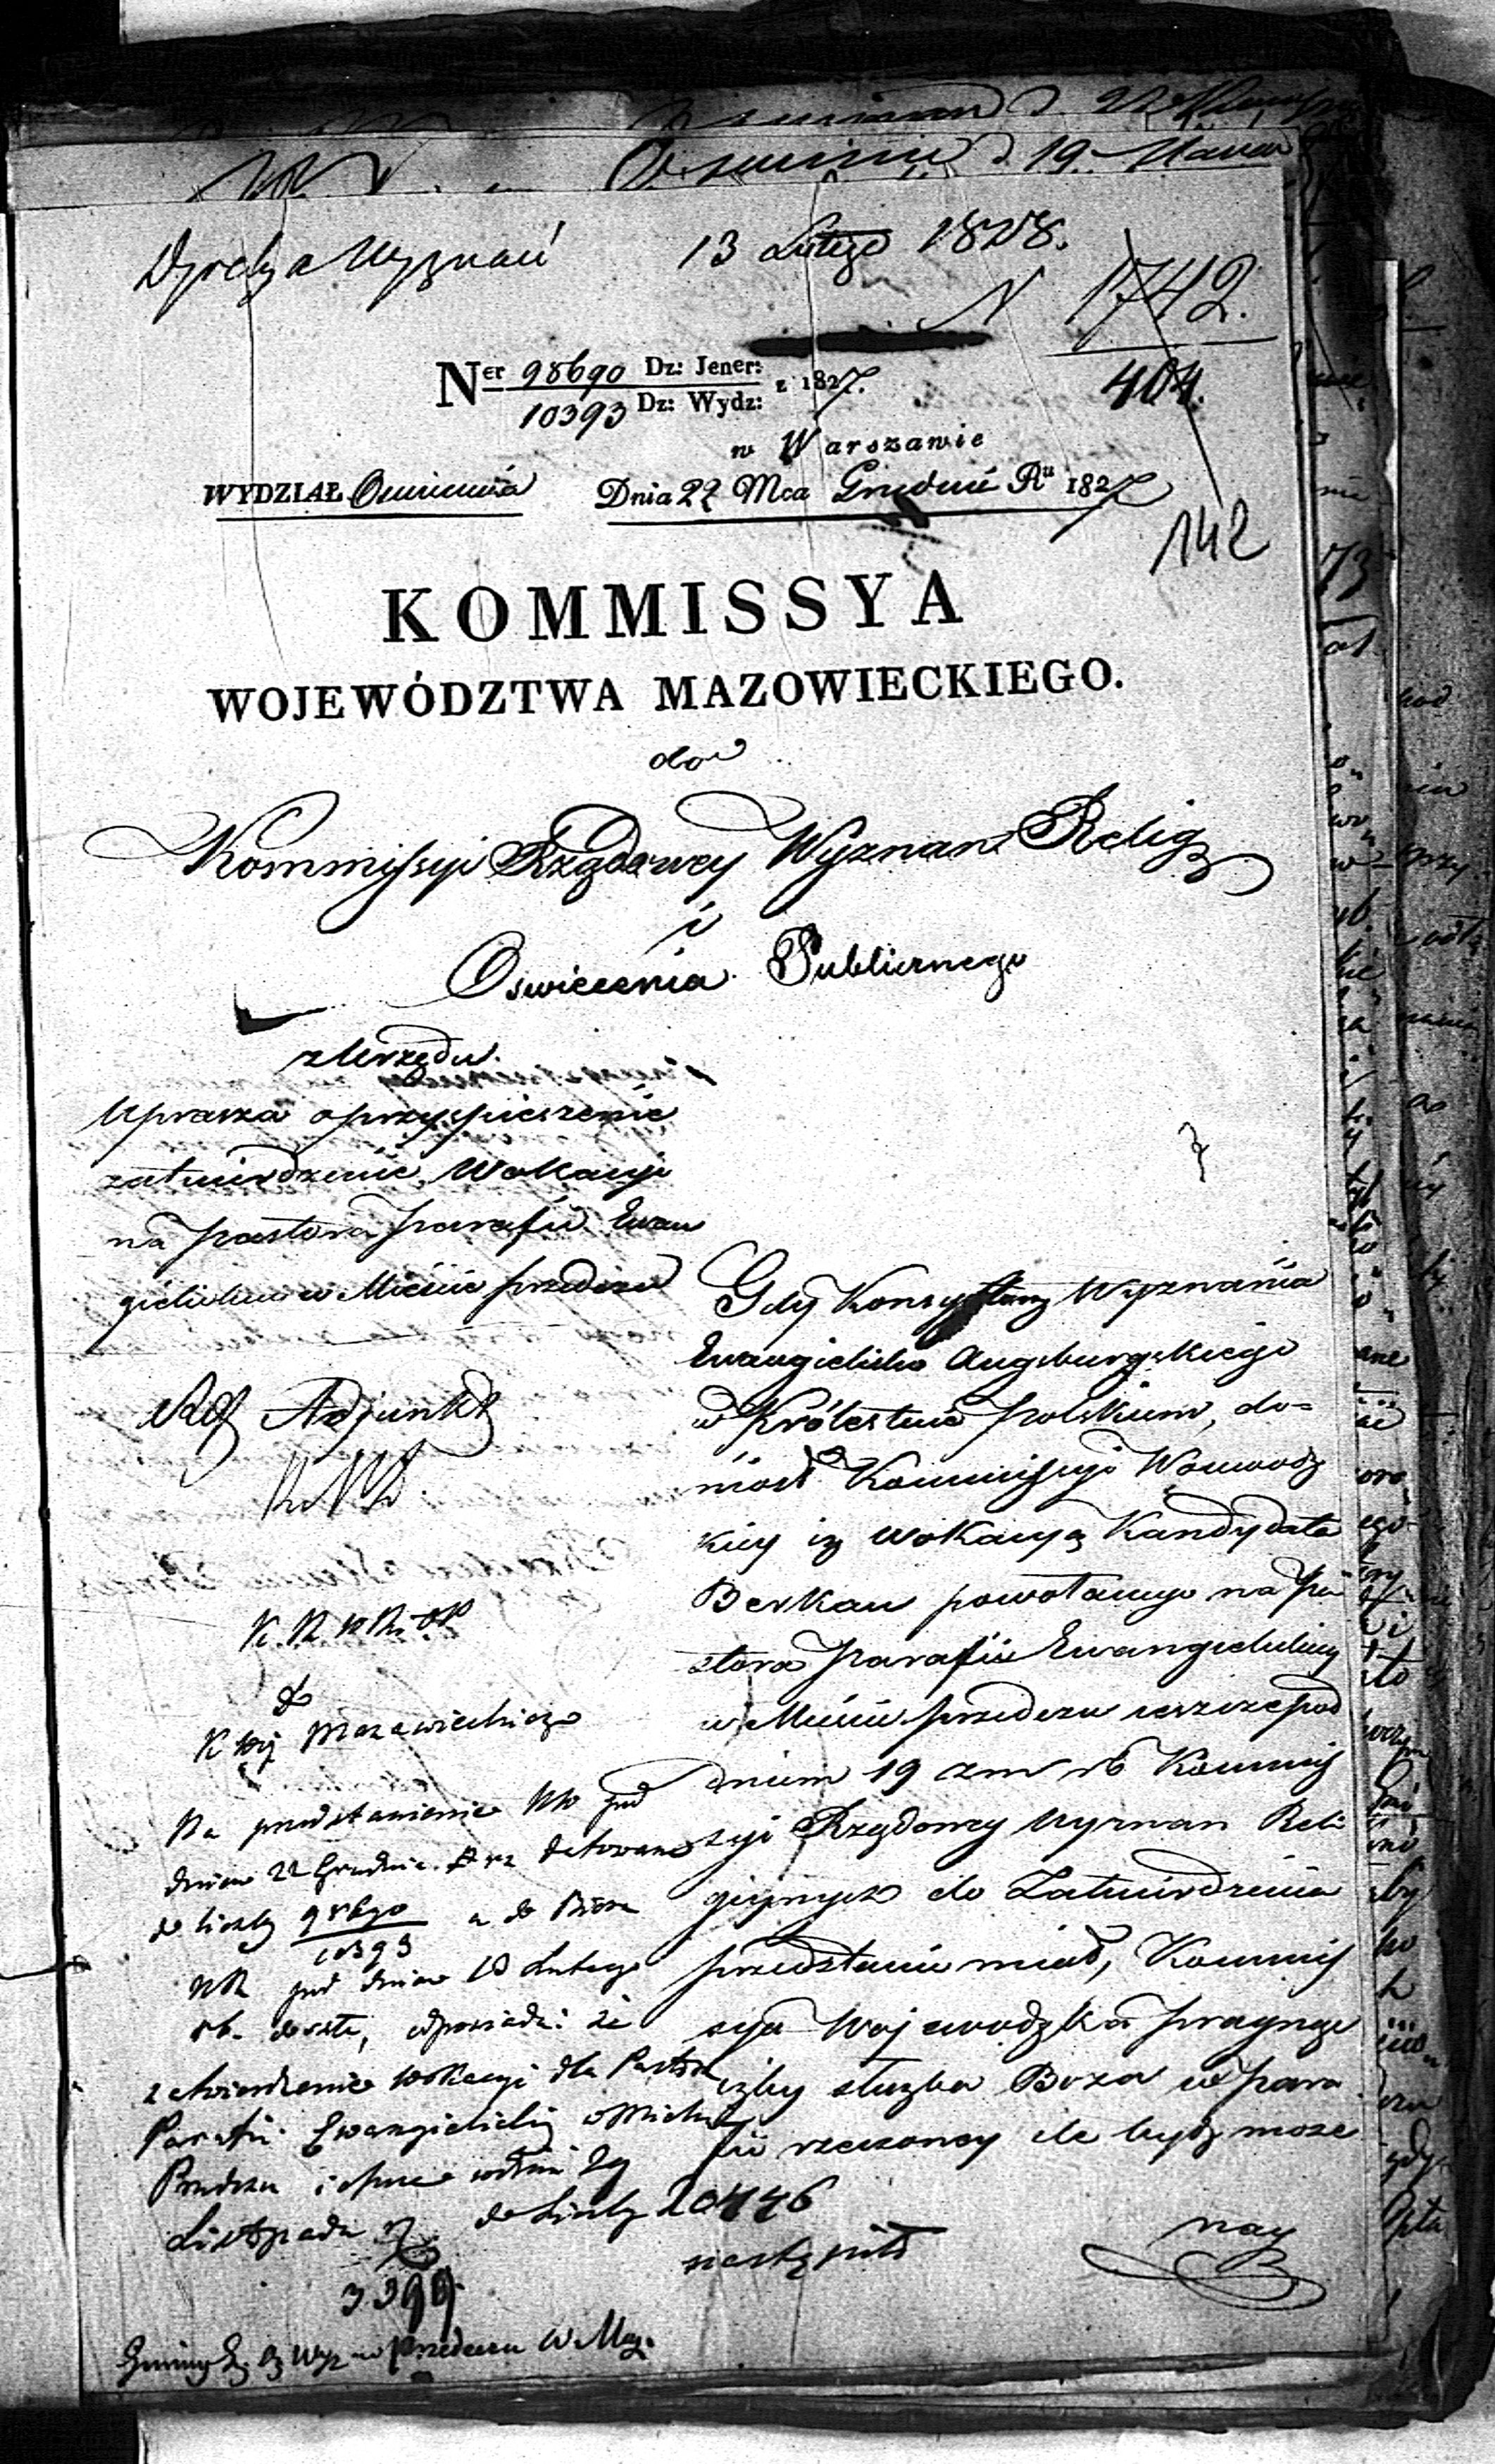 Dyrekcya Wyznań 13 Lutego 1828.
N 1742.
404.
Ner 98690 Dz: Jener: z 1827.
10393 Dz: Wydz:
w Warszawie
WYDZIAŁ Oswiecenia Dnia 22 Mca Grudnia Ru 1827
142
KOMMISSYA
WOJEWÓDZTWA MAZOWIECKIEGO.
do
Kommissyi Rządowey Wyznan Relig
i
Oswiecenia Publicznego
z Urzędu.
Uprasza o przyspieszenie
zatwierdzenie Wokacyi
na Pastora Parafii Ewan
gielickiey w Mieście Przedecz
Adjunkt
Gdy Konsystorz Wyznania
Ewangielicko Augsburgskiego
w Królestwie Polskiem, do=
niosł Kommissyi Woiewodz
kiey iż Wokacyą Kandydata
Berkau powołanego na Pa
stora Parafii Ewangielickiey
w Mieście Przedeczu ieszcze pod
dniem 19 zm rb Kommis
syi Rządowey Wyznan Reli
giynych do Zatwierdzenia
przedstawić miał, Kommis
sya Wojewodzka pragnąc
iżby służba Boża w Para
fii rzeczoney ile bydź może
nay
K. R. W R. i OP
do
K Wey Mazowieckiego
Na przedstawienie KW pod
dniem 22 Grudnia rz datowane
do liczby 98690
10393
a do Biora
KR pod dniem 13 Lutego
rb. doszłe, odpowiada: że
zatwierdzenie Wokacyi dla Pastora
Parafii Ewangielickiey w Mieście
Przedczu iuż w dniu 29
Listopada rz do Liczby 20446
nastąpiło
3399
Gminy Ew. Wyz w Przedeczu W. Maz.